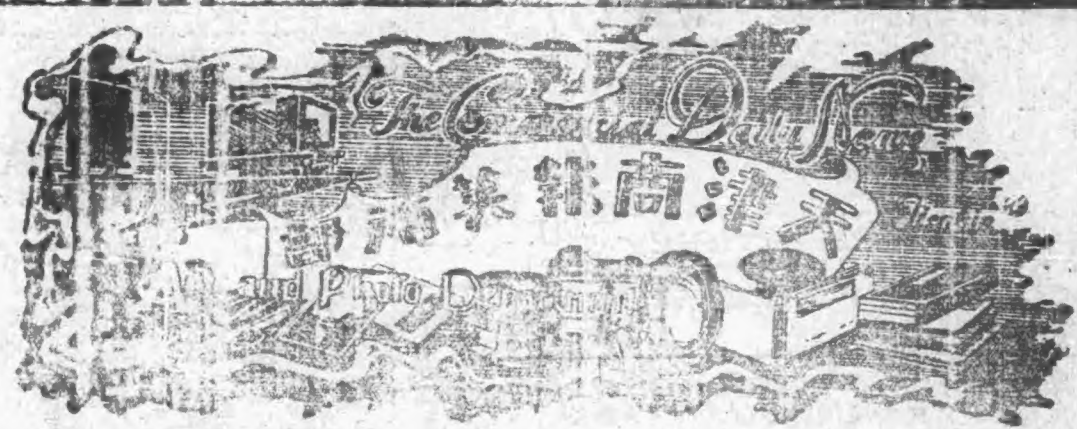 The Commercial Daily News,
天津商報
Tientsin
Art and Photo Department